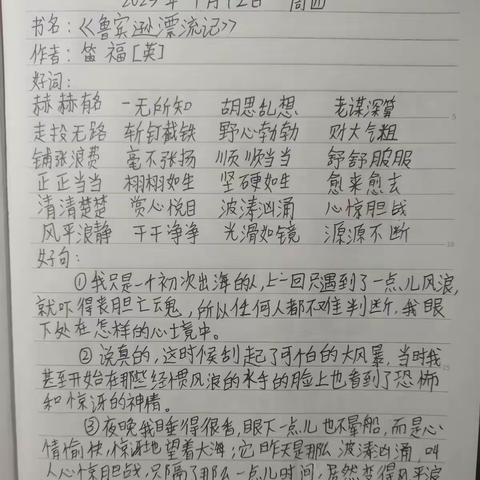 2023年1月12日 周四
书名:《鲁宾逊漂流记》
作者:笛福[英]
好词:
赫赫有名 一无所知 胡思乱想 老谋深算
走投无路 斩钉截铁 野心勃勃 财大气粗
铺张浪费 毫不张扬 顺顺当当 舒舒服服
正正当当 栩栩如生 坚硬如生 愈来愈去
清清楚楚 赏心悦目 波涛汹涌 心惊胆战
风平浪静 干干净净 光滑如镜 源源不断
好句:
①我只是一个初次出海的人,上一回只遇到了一点儿风浪,
就吓得丧胆亡魂,所以任何人都不难判断,我眼
下处在怎样的心境中。
②说真的,这时候刮起了可怕的大风暴,当时我
甚至开始在那些经惯风浪的水手的脸上也看到了恐怖
和惊讶的神情。
③夜晚我睡得很香,眼下一点儿也不晕船,而是心
情愉快,惊讶地望着大海;它昨天是那么波涛汹涌,叫
人心惊胆战,只隔了那么一点儿时间,居然变得风平浪